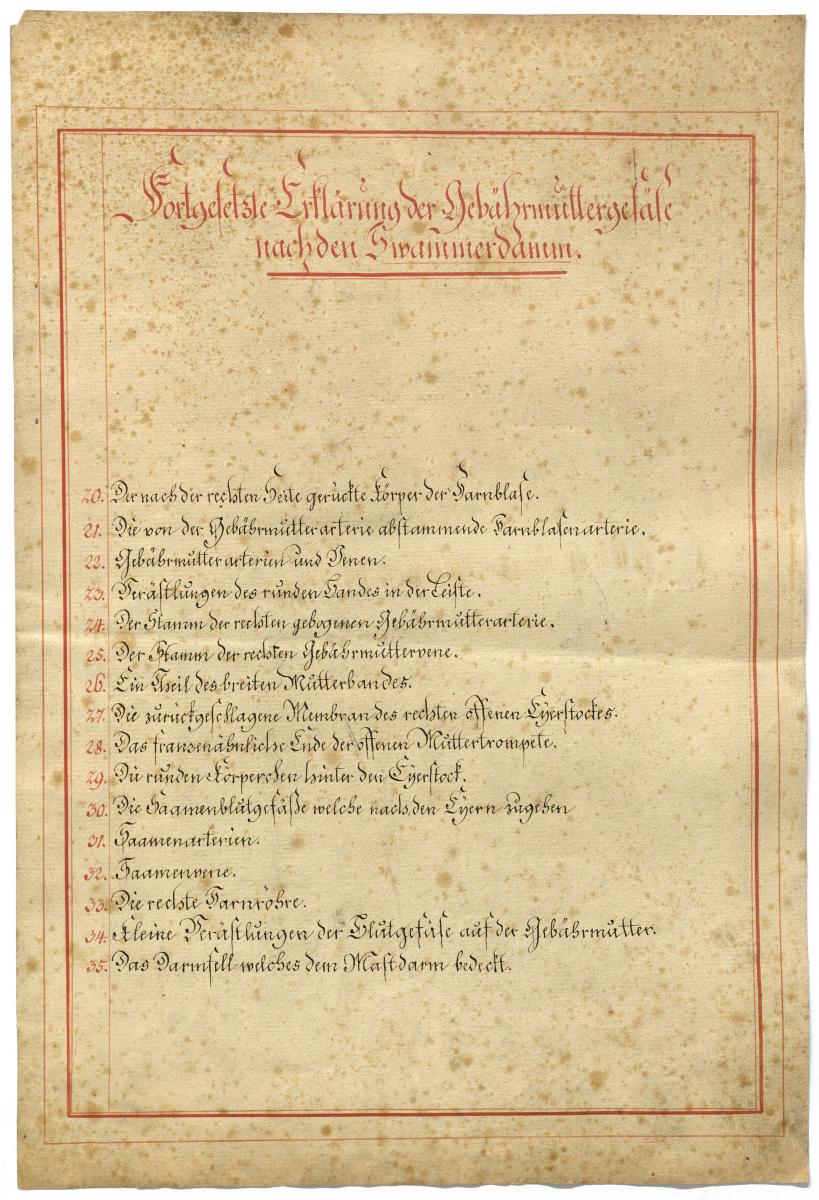 Fortgesetzte Erklärung der Gebährmuttergefäse
nach den Swammerdamm.
20. Der nach der rechten Seite gerückte Körper der Harnblase.
21. Die von der Gebährmutterarterie abstammende Harnblasenarterie.
22. Gebährmutterarterien und Venen.
23. Verästlungen des runden Bandes in der Leiste.
24. Der Stamm der rechten gebogenen Gebährmutterarterie.
25. Der Stamm der rechten Gebährmuttervene.
26. Ein Theil des breiten Mutterbandes.
27. Die zurückgeschlagene Membran des rechten offenen Eyerstockes.
28. Das franzenähnliche Ende der offenen Muttertrompete.
29. Die runden Körperchen hinter den Eyerstock.
30. Die Saamenblutgefäße welche nach den Eyern zugehen
31. Saamenarterien.
32. Saamenvene.
33. Die rechte Harnröhre.
34. Kleine Verästlungen der Blutgefäse auf der Gebährmutter.
35. Das Darmfell welches dem Mastdarm bedeckt.